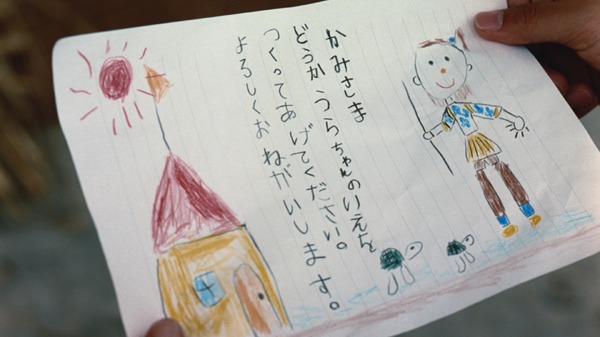 かみさま
どうかうらちゃんのいえを
つくってあげてください。
よろしくおねがいします。